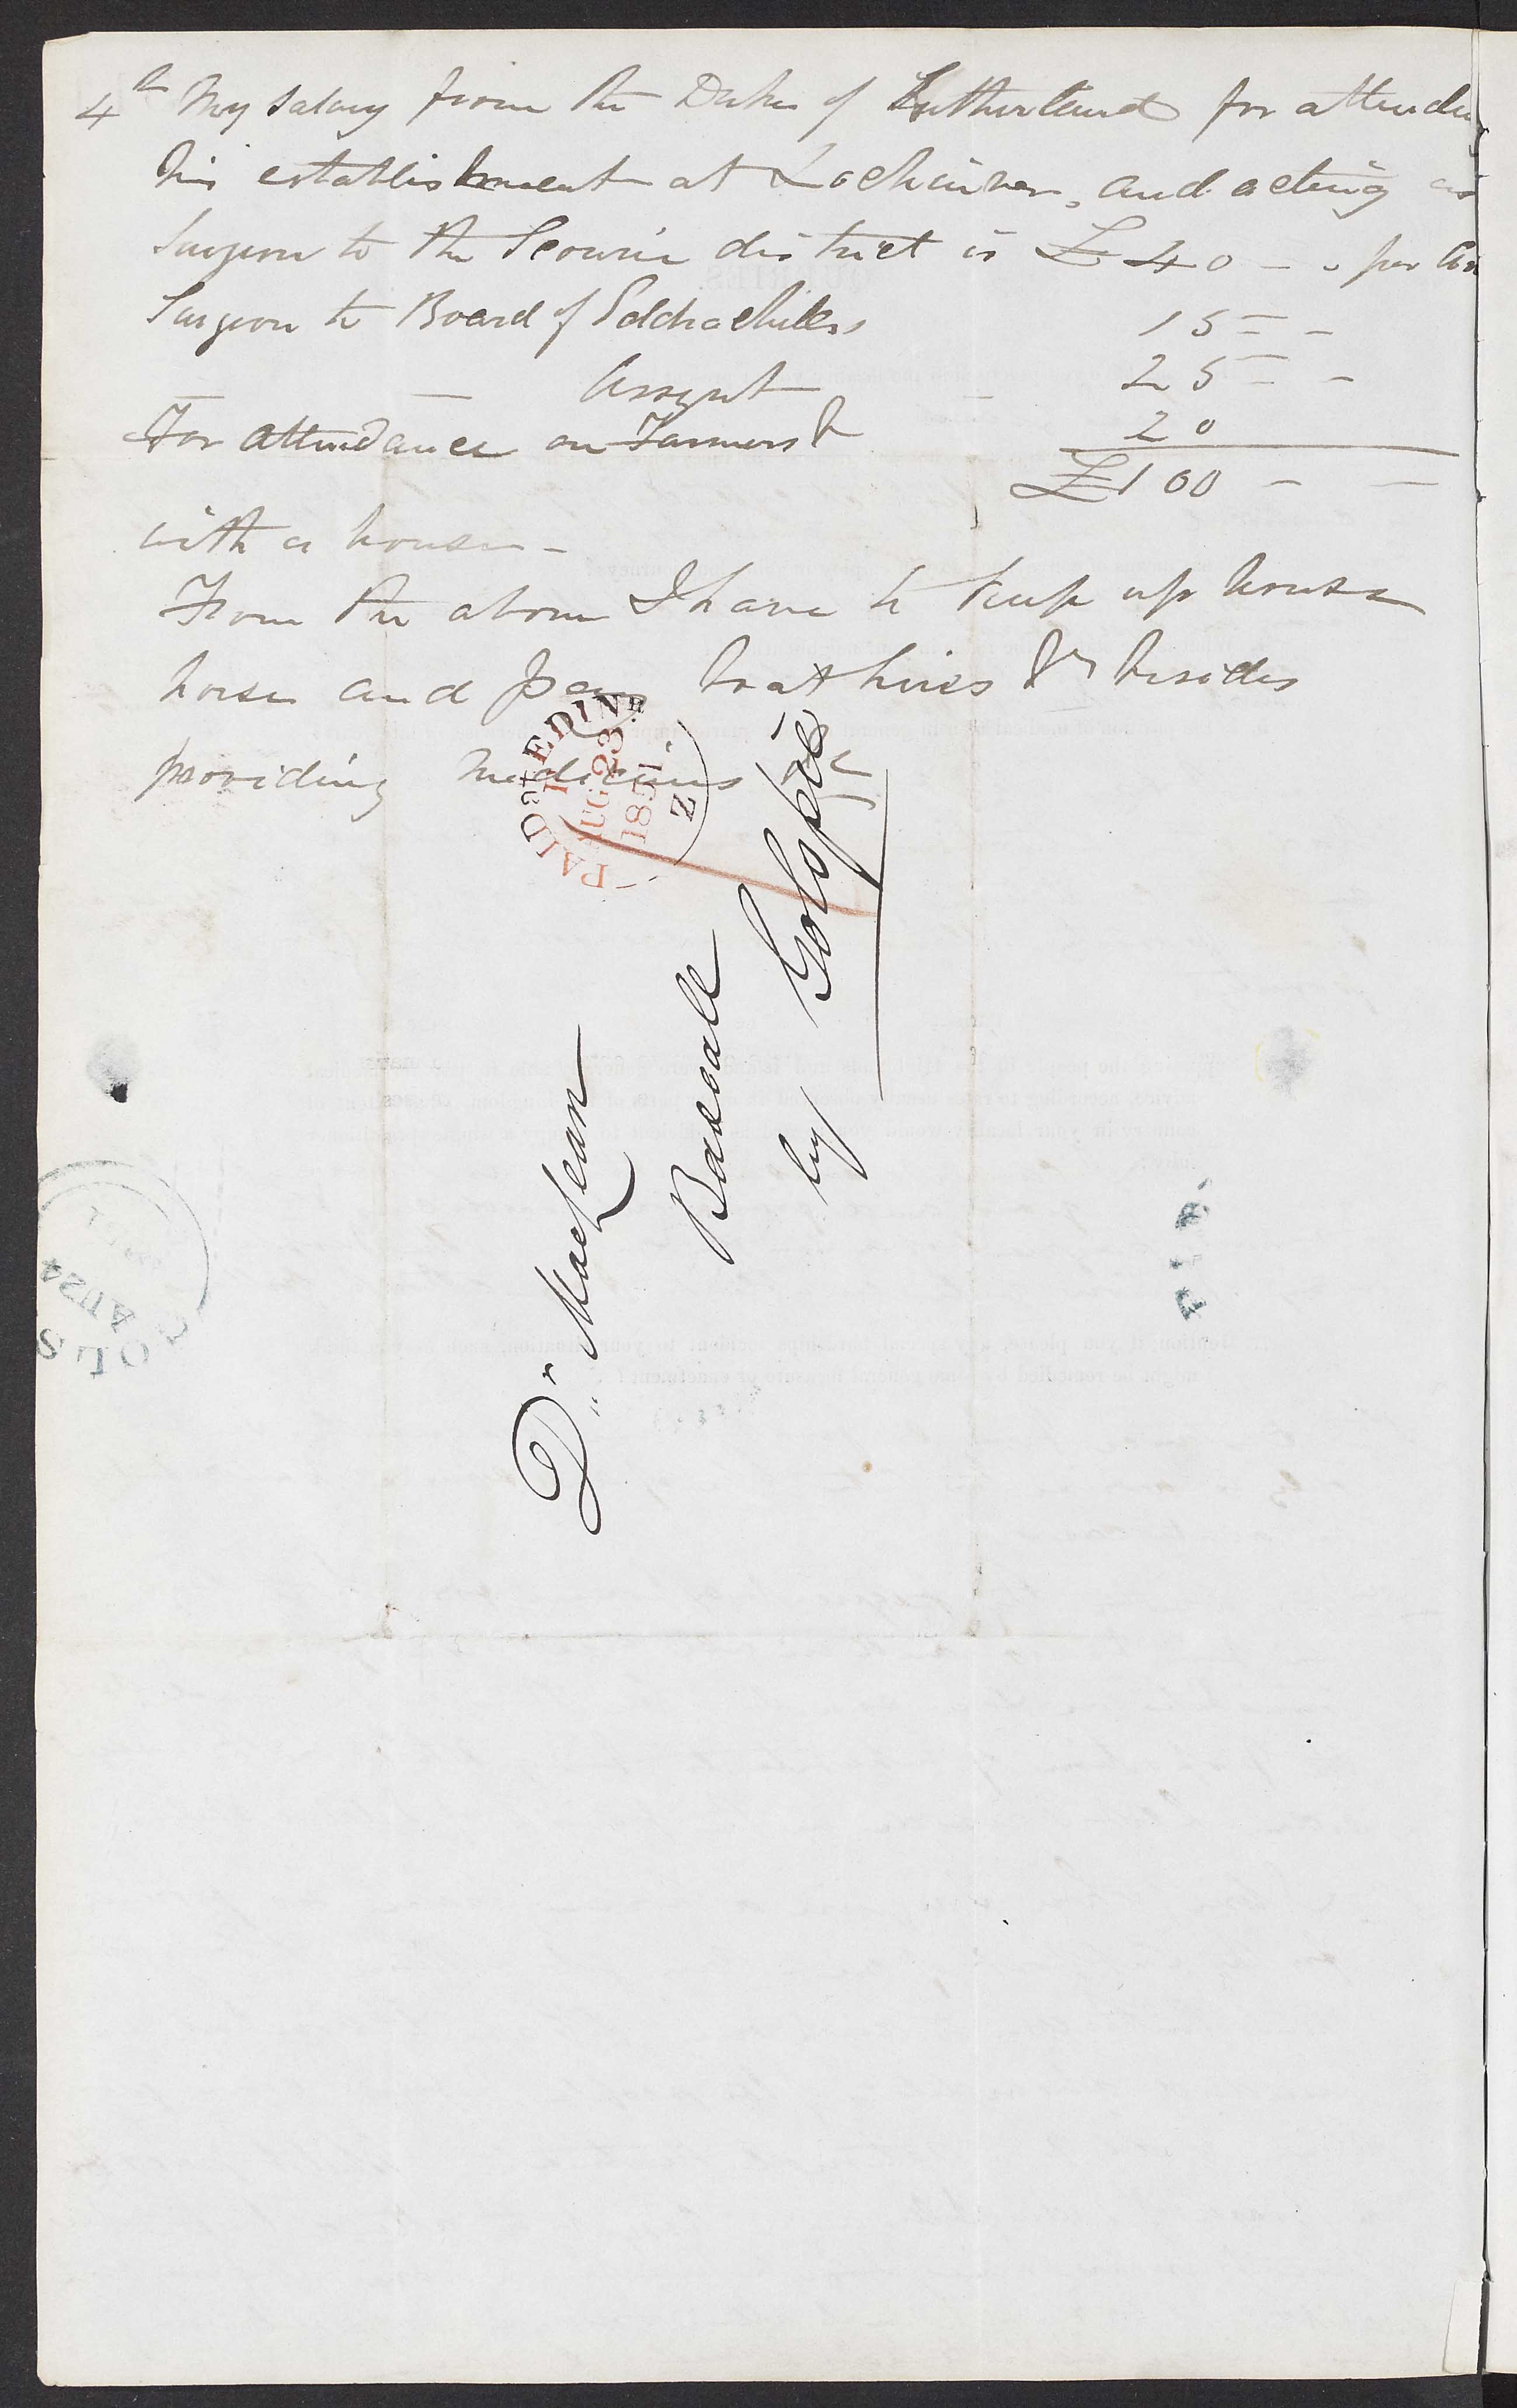 4th My Salary from the Duke of Sutherland for attending
his establishment at Lochinver, and acting as
Surgeon to the Scourie district is £ 40 - - per An
Surgeon to Board of Eddrachillis 15 - -
— — Assynt — 25 - -
For attendance on Farmers &c 20
£100 - -
with a house -
From the above I have to keep up house
horse and pay boat hires &c besides
providing medicines &c
PAID at EDINR
AUG 23
1851
Z
Dr. MacLean
Badcall
by Golspie
AU 24